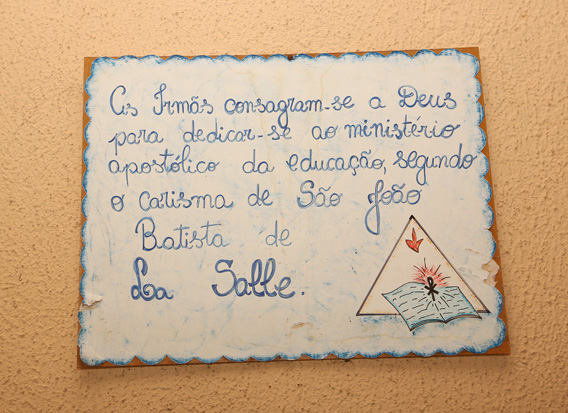 As Irmãs consagram-se a Deus
para dedicar-se ao ministério
apostólico da educação, segundo
o carisma de São João
Batista de
La Salle.